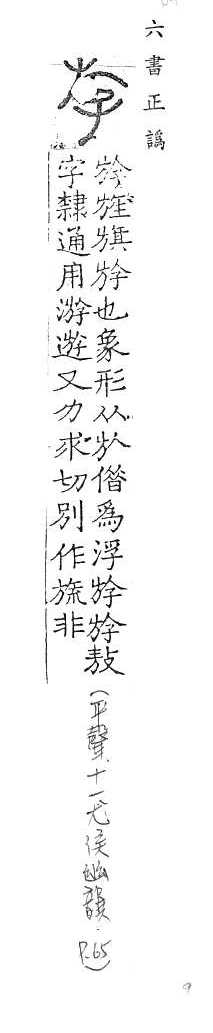 六書正譌
斿
旌旗斿也象形从㫃偕爲浮斿斿敖
字隸通用游遊又力求切別作旒非
(平聲.十一尤侯幽韻.P.65)
9